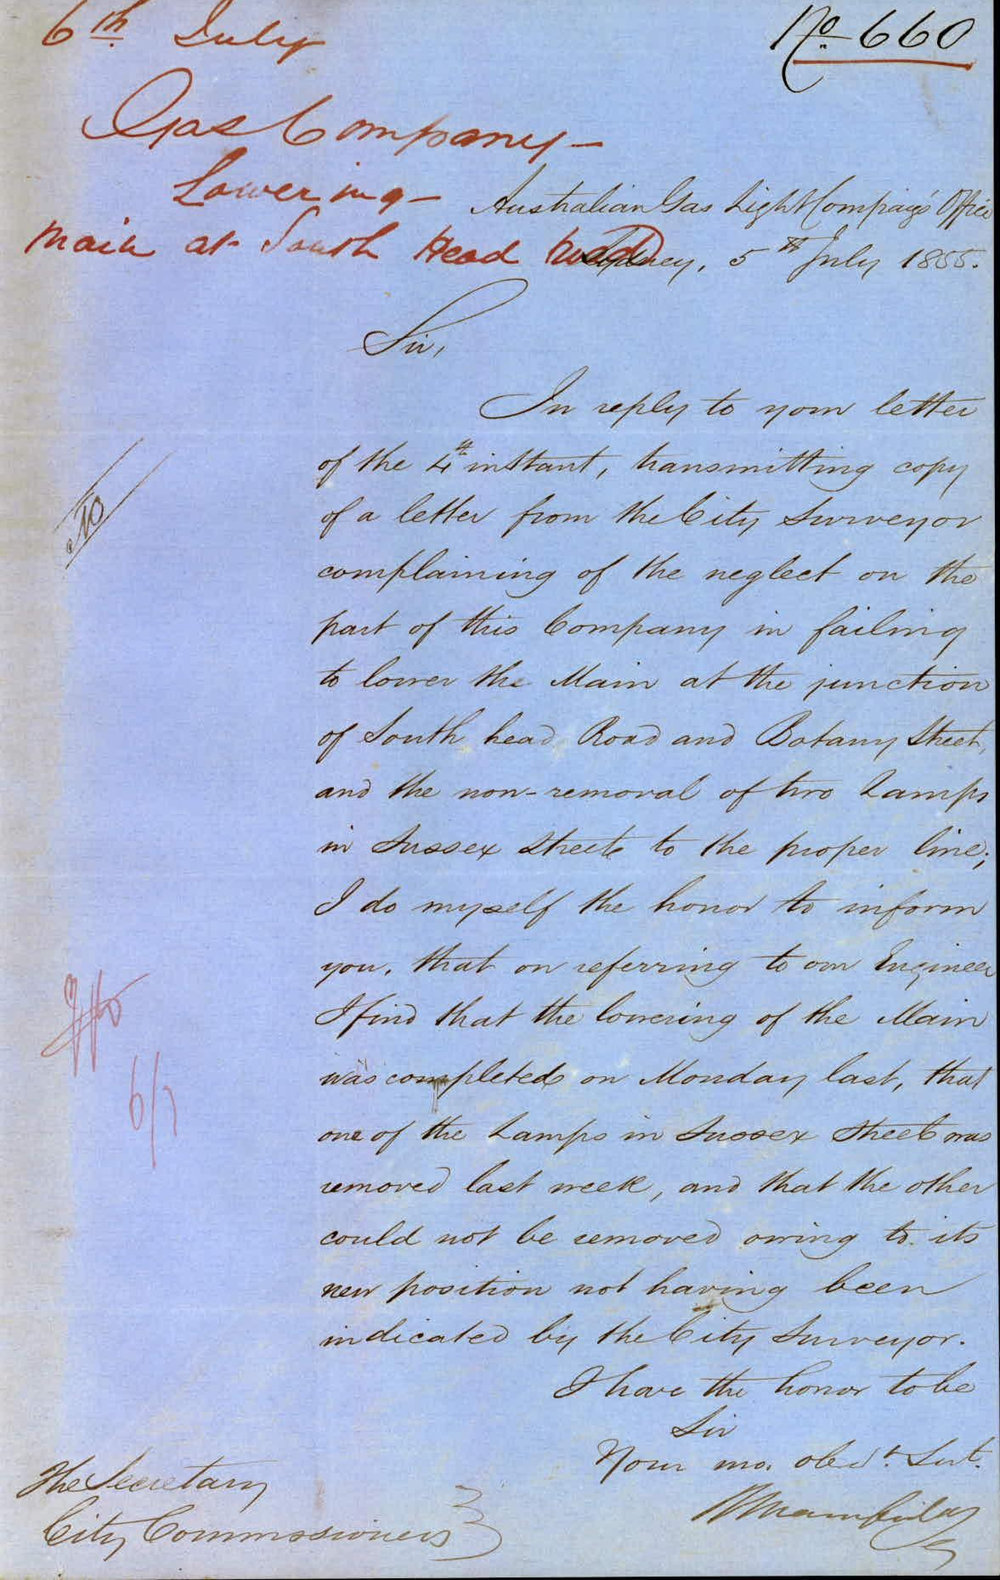 6th July
No 660
Gas Company -
Lowering -
Main at South Head Road
Australian Gas Light Company's Office
Sydney, 5th July 1855.
Sir,
In reply to your letter
of the 4th instant, transmitting copy
of a letter from the City Surveyor
complaining of the neglect on the
part of this Company in failing
to lower the Main at the junction
of South head Road and Botany Street,
and the non-removal of two Lamps
in Sussex Street to the proper line;
I do myself the honor to inform
you, that on referring to our Engineer
I find that the lowering of the Main
was completed on Monday last, that
one of the Lamps in Sussex Street was
removed last week, and that the other
could not be removed owing to its
new position not having been
indicated by the City Surveyor.
I have the honor to be
Sir
Your mo. obedt. Servt.
The Secretary
City Commissioners
6/7